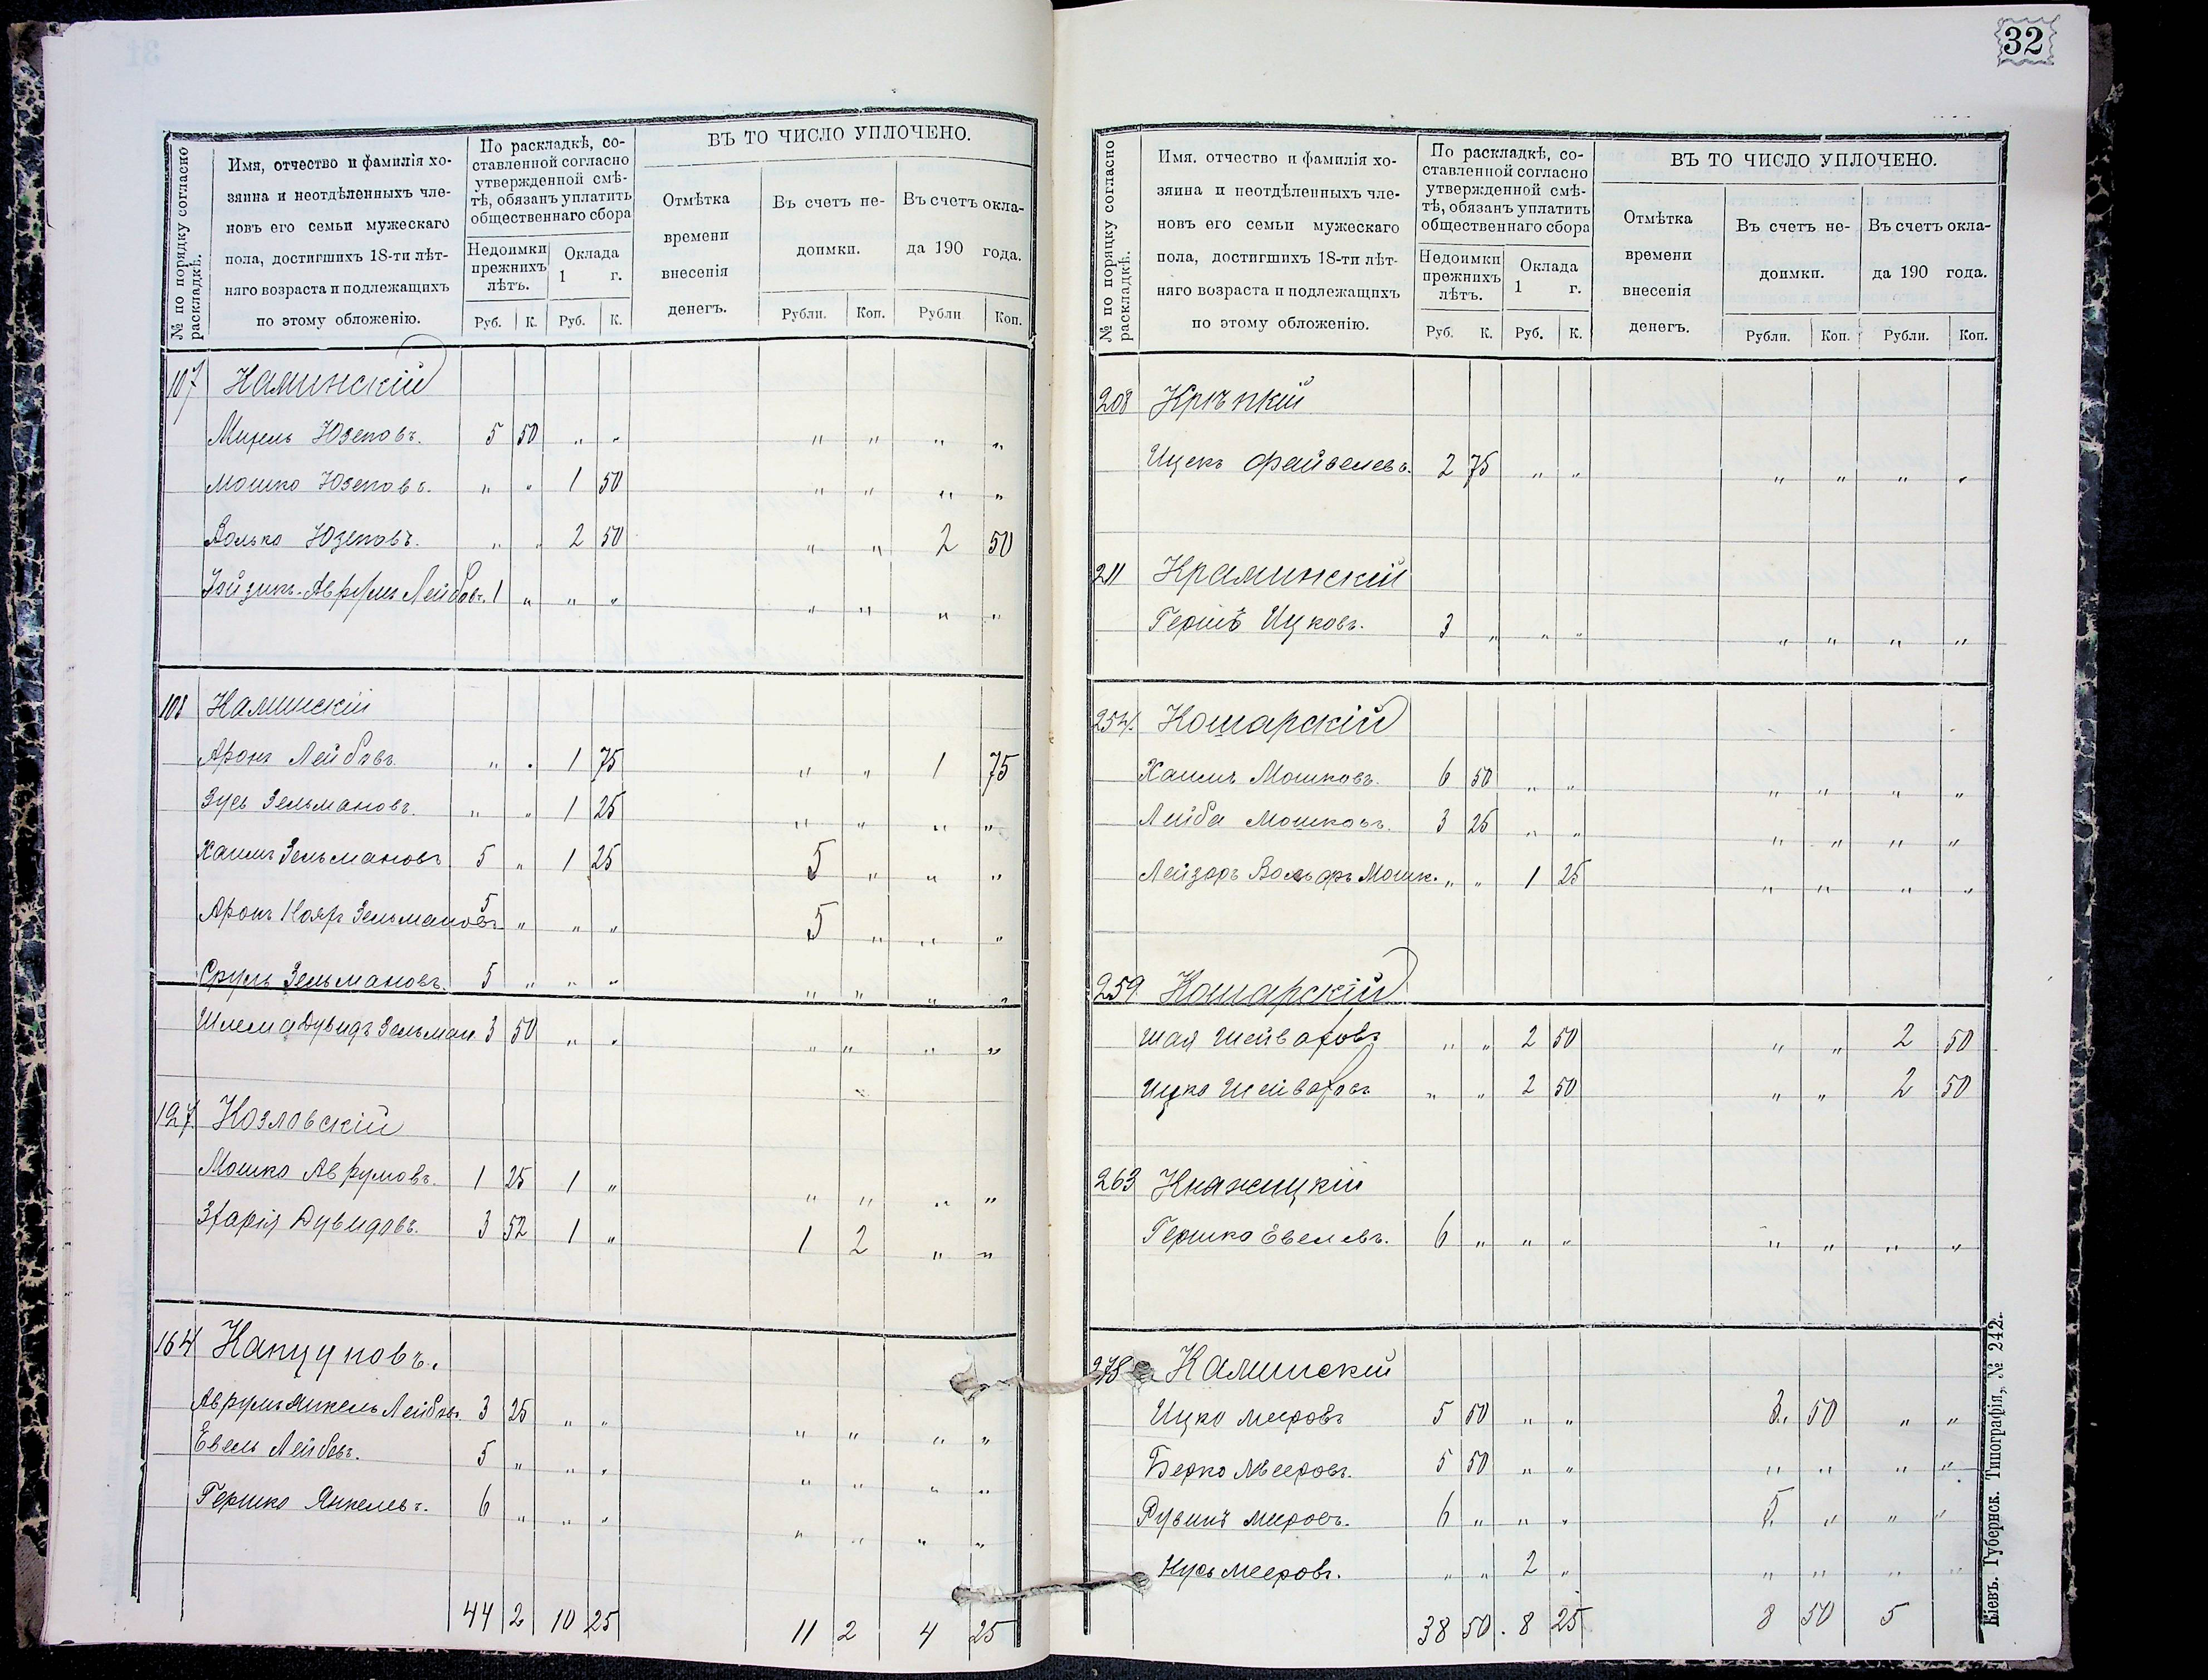 32
№ по порядку согласно раскладкѣ.
Имя, отчество и фамилія хо-
зяина и неотдѣленныхъ чле-
новъ его семьи мужескаго
пола, достигшихъ 18-ти лѣт-
няго возраста и подлежащихъ
по этому обложенію.
По раскладкѣ, со-
ставленной согласно
утвержденной смѣ-
тѣ, обязанъ уплатить
общественнаго сбора
Недоимки
прежнихъ
лѣтъ.
Оклада
1 г.
Руб. К. Руб. К.
ВЪ ТО ЧИСЛО УПЛОЧЕНО.
Отмѣтка
времени
внесенія
денегъ.
Въ счетъ не-
доимки.
Въ счетъ окла-
да 190 года.
Рубли. Коп. Рубли Коп.
107 Каминскій
Мехель Юзеповъ. 5 50 " " " " " "
Мошко Юзеповъ. " " 1 50 " " " "
Волько Юзеповъ. " " 2 50 " " 2 50
Айзикъ-Аврумъ Лейбов. 1 " " " " " " "
108 Каминскій
Аронъ Лейбовъ " " 1 75 " " 1 75
Зусь Зельмановъ. " " 1 25 " " " "
Хаимъ Зельмановъ 5 " 1 25 5 " " "
Аронъ Зельмановъ 5 " " " 5 " " "
Сруль Зельмановъ. 5 " " " " " " "
Шлема Дувидъ Зельман 3 50 " " " " " "
127 Козловскій
Мошко Аврумовъ. 1 25 1 " " " " "
Захарія Дувидовъ. 3 52 1 " 1 2 " "
164 Капцуновъ.
Аврумъ Янкель Лейбов 3 25 " " " " " "
Евель Лейбовъ. 5 " " " " " " "
Гершко Янкелевъ. 6 " " " " " " "
44 2 10 25 11 2 4 25
№ по порядку согласно раскладкѣ.
Имя, отчество и фамилія хо-
зяина и неотдѣленныхъ чле-
новъ его семьи мужескаго
пола, достигшихъ 18-ти лѣт-
няго возраста и подлежащихъ
по этому обложенію.
По раскладкѣ, со-
ставленной согласно
утвержденной смѣ-
тѣ, обязанъ уплатить
общественнаго сбора
Недоимки
прежнихъ
лѣтъ.
Оклада
1 г.
Руб. К. Руб. К.
ВЪ ТО ЧИСЛО УПЛОЧЕНО.
Отмѣтка
времени
внесенія
денегъ.
Въ счетъ не-
доимки.
Въ счетъ окла-
да 190 года.
Рубли. Коп. Рубли. Коп.
208 Крѣпкій
Ицекъ Файвелевъ. 2 75 " " " " " "
211 Краминскій
Гершъ Ицковъ. 3 " " " " " " "
254. Кошарскій
Хаимъ Мошковъ. 6 50 " " " " " "
Лейба Мошковъ. 3 25 " " " " " "
Лейзоръ Вольфъ Мошк. " " 1 25 " " " "
259 Кошарскій
Шая Шейваховъ " " 2 50 " " 2 50
Ицко Шейваховъ " " 2 50 " " 2 50
263 Княжицкій
Гершко Евелевъ. 6 " " " " " " "
278 Каминскій
Ицко Мееровъ 5 50 " " 3. 50 " "
Берко Мееровъ. 5 50 " " " " " "
Рувинъ Мееровъ. 6 " " " 5. " " "
Нусь Мееровъ. " " 2 " " " " "
38 50. 8 25 8 50 5
Кіевъ. Губернск. Типографія, № 242.